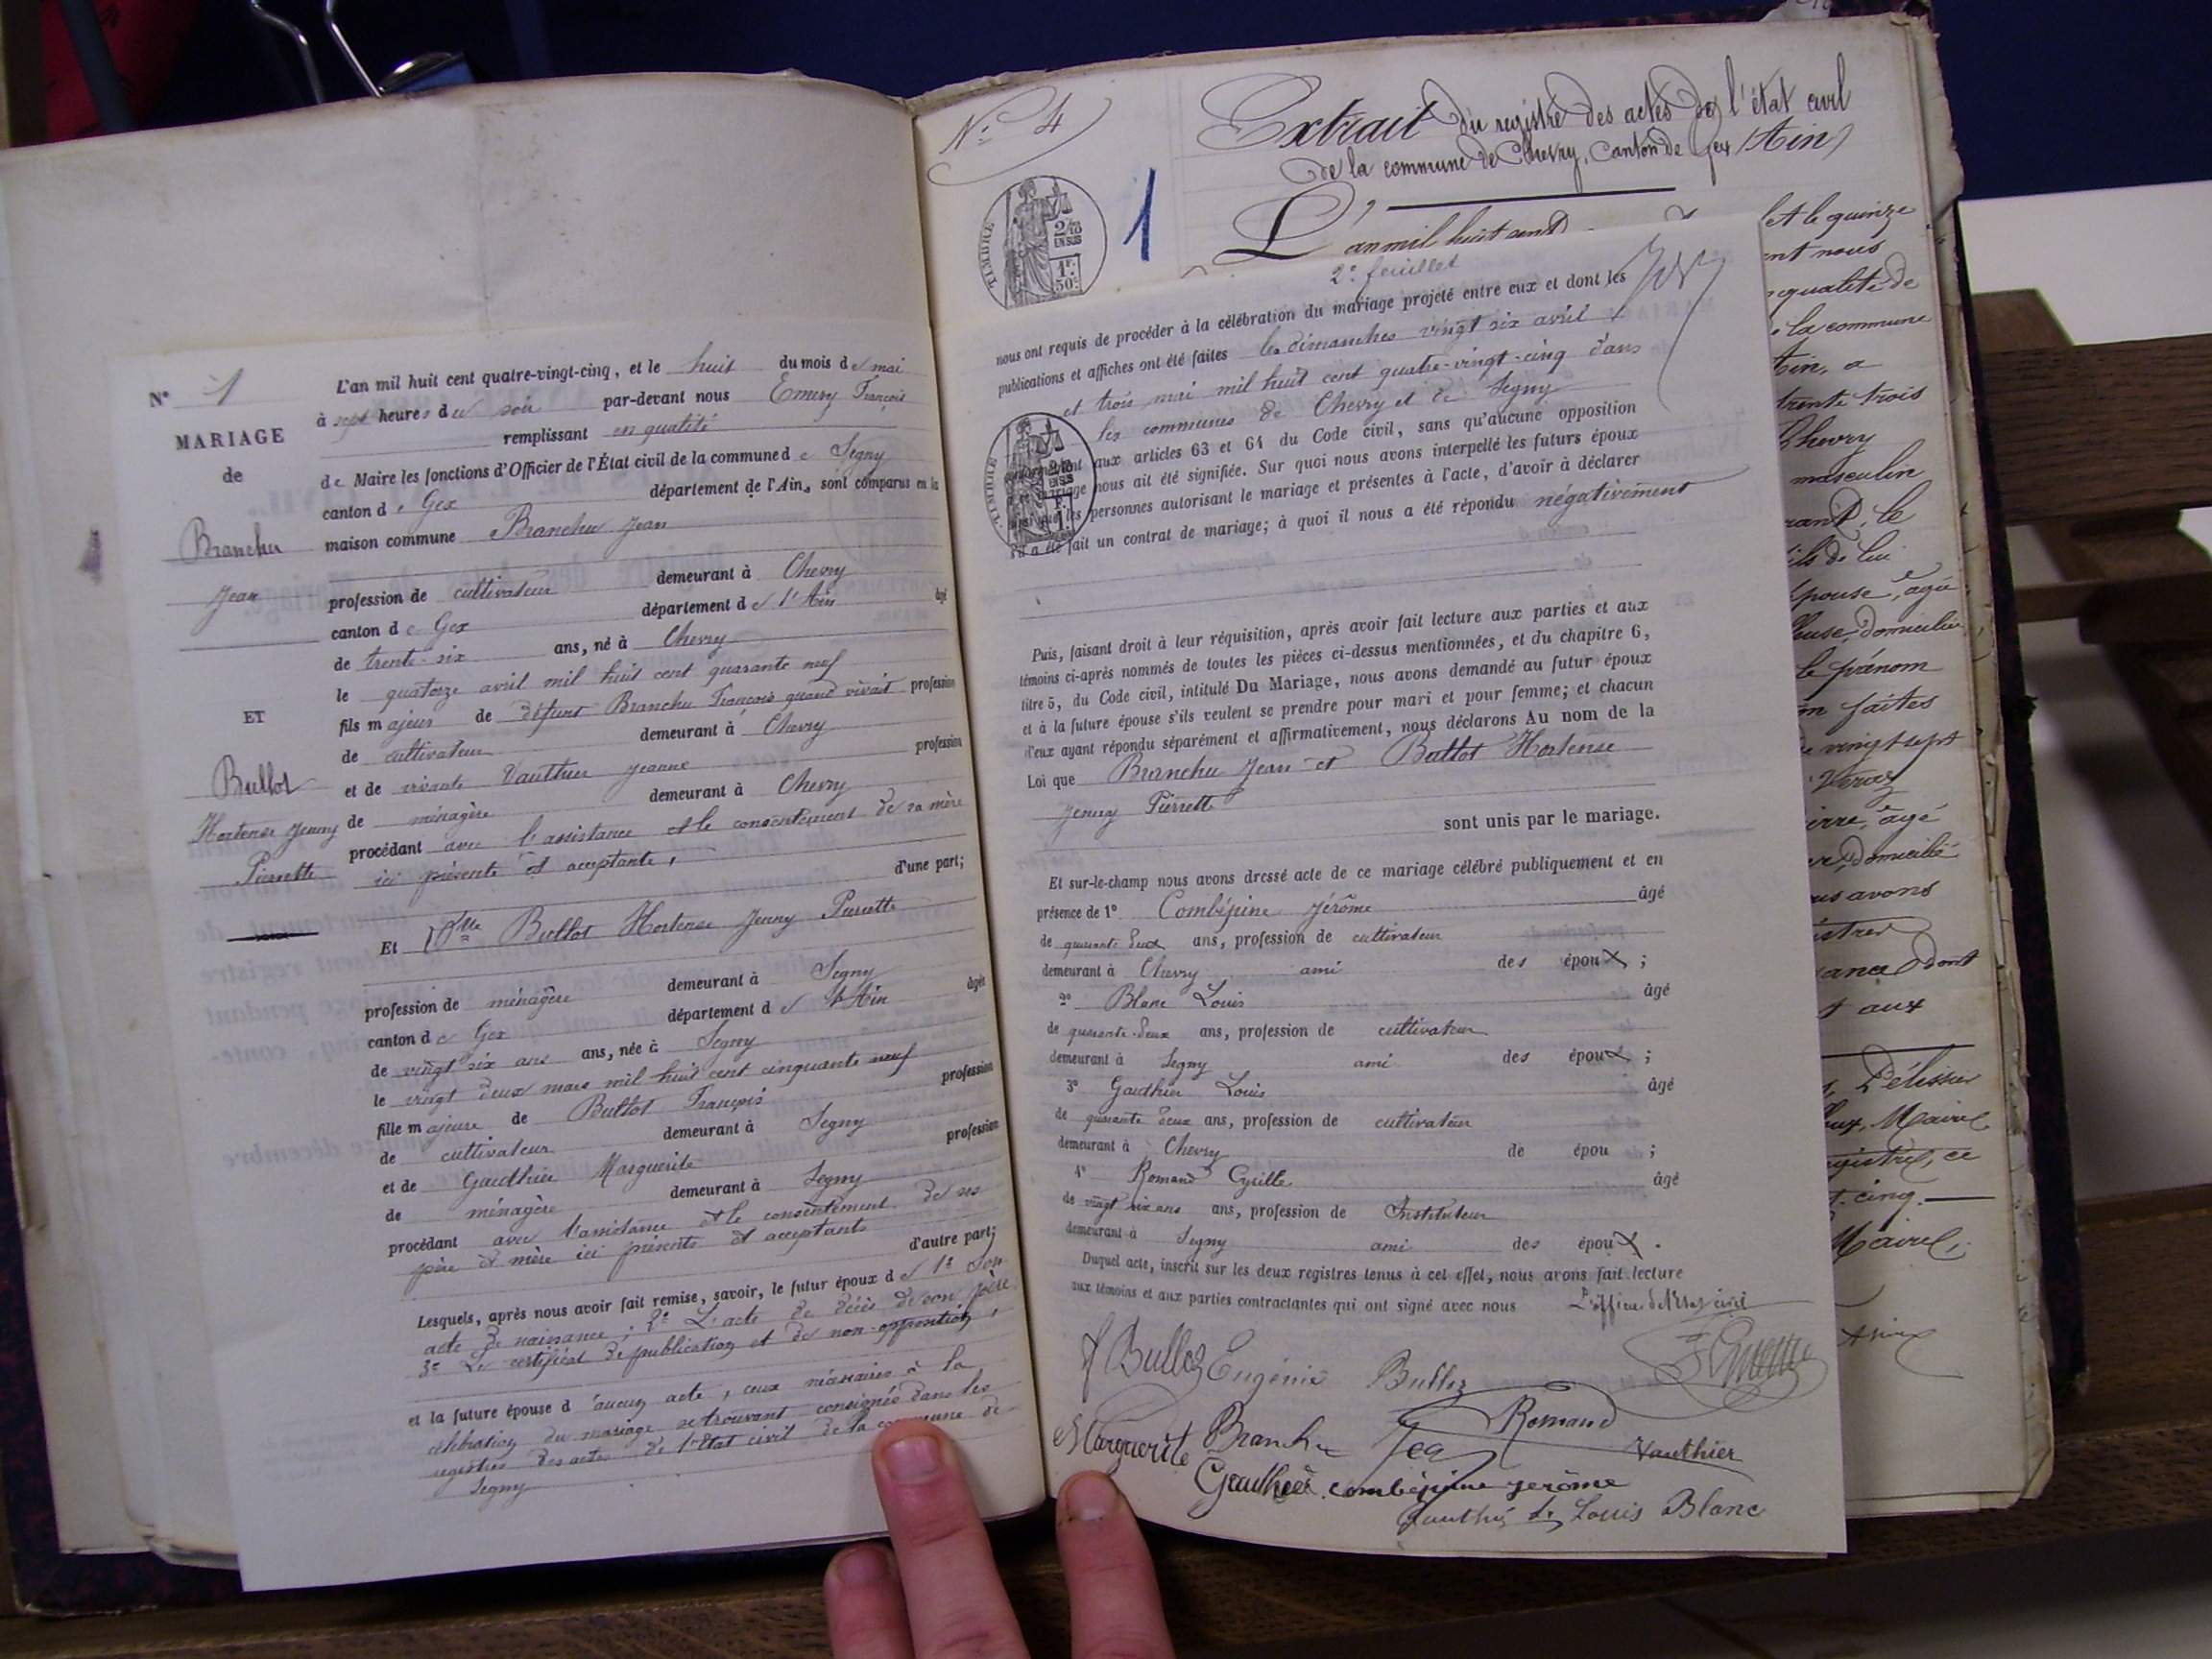 N° 1
MARIAGE
de
Branchu
Jean
ET
Bullot
Hortense Jenny
Pierrette
L'an mil huit cent quatre-vingt-cinq, et le huit du mois de mai
à sept heures du soir par-devant nous Emery François
remplissant en qualité
de Maire les fonctions d'Officier de l'État civil de la commune de Segny
canton de Gex département de l'Ain, sont comparus en la
maison commune Branchu Jean
profession de cultivateur demeurant à Chevry
canton de Gex département de l'Ain âgé
de trente-six ans, né à Chevry
le quatorze avril mil huit cent quarante neuf
fils majeur de défunt Branchu François quand vivait profession
de cultivateur demeurant à Chevry
et de vivante Vauthier Jeanne profession
de ménagère demeurant à Chevry
procédant avec l'assistance et le consentement de sa mère
ici présente et acceptante, d'une part;
Et Dlle Bullot Hortense Jenny Pierrette
profession de ménagère demeurant à Segny
canton de Gex département de l'Ain âgée
de vingt six ans ans, née à Segny
le vingt deux mars mil huit cent cinquante neuf
fille majeure de Bullot François profession
de cultivateur demeurant à Segny
et de Gaudhier Marguerite profession
de ménagère demeurant à Segny
procédant avec l'assistance et le consentement de ses
père et mère ici présents et acceptants d'autre part;
Lesquels, après nous avoir fait remise, savoir, le futur époux de 1° son
acte de naissance; 2° L'acte de décès de son père
3° Le certificat de publication et de non-opposition,
et la future épouse d'aucun acte, ceux nécessaires à la
célébration du mariage se trouvant consignés dans les
registres des actes de l'Etat civil de la commune de
Segny
N° 4
Extrait du registre des actes de l'état civil
de la commune de Chevry, Canton de Gex (Ain)
1
TIMBRE
2/10
EN SUS
1F.
50c
L'an mil huit cent
2e feuillet
nous ont requis de procéder à la célébration du mariage projeté entre eux et dont les
publications et affiches ont été faites les dimanches vingt six avril
et trois mai mil huit cent quatre-vingt-cinq dans
les communes de Chevry et de Segny
TIMBRE
aux articles 63 et 64 du Code civil, sans qu'aucune opposition
mariage nous ait été signifiée. Sur quoi nous avons interpellé les futurs époux
ainsi que les personnes autorisant le mariage et présentes à l'acte, d'avoir à déclarer
s'il a été fait un contrat de mariage; à quoi il nous a été répondu négativement
Puis, faisant droit à leur réquisition, après avoir fait lecture aux parties et aux
témoins ci-après nommés de toutes les pièces ci-dessus mentionnées, et du chapitre 6,
titre 5, du Code civil, intitulé Du Mariage, nous avons demandé au futur époux
et à la future épouse s'ils veulent se prendre pour mari et pour femme; et chacun
d'eux ayant répondu séparément et affirmativement, nous déclarons Au nom de la
Loi que Branchu Jean et Bullot Hortense
Jenny Pierrette
sont unis par le mariage.
Et sur-le-champ nous avons dressé acte de ce mariage célébré publiquement et en
présence de 1° Combépine Jérôme âgé
de quarante deux ans, profession de cultivateur
demeurant à Chevry ami des époux;
2° Blanc Louis âgé
de quarante-deux ans, profession de cultivateur
demeurant à Segny ami des époux;
3° Gaudhier Louis âgé
de quarante deux ans, profession de cultivateur
demeurant à Chevry de épou ;
4° Romand Cyrille âgé
de vingt six ans ans, profession de Instituteur
demeurant à Segny ami des époux.
Duquel acte, inscrit sur les deux registres tenus à cet effet, nous avons fait lecture
aux témoins et aux parties contractantes qui ont signé avec nous L'officier de l'Etat civil
f Bulloz Eugénie Bulloz
Marguerite Branchu Jean Romand Vauthier
Gauthier combépine jerôme
Louis Blanc
et le quinze
ent nous
qualité de
la commune
Ain, a
trente trois
Chevry
masculin
le
fils de lui
épouse, âgée
domiciliée
le prénom
faites
vingt sept
âgé
domicilié
ous avons
dont
aux
Pélissier
Maire
registre, ce
cinq.
Maire,